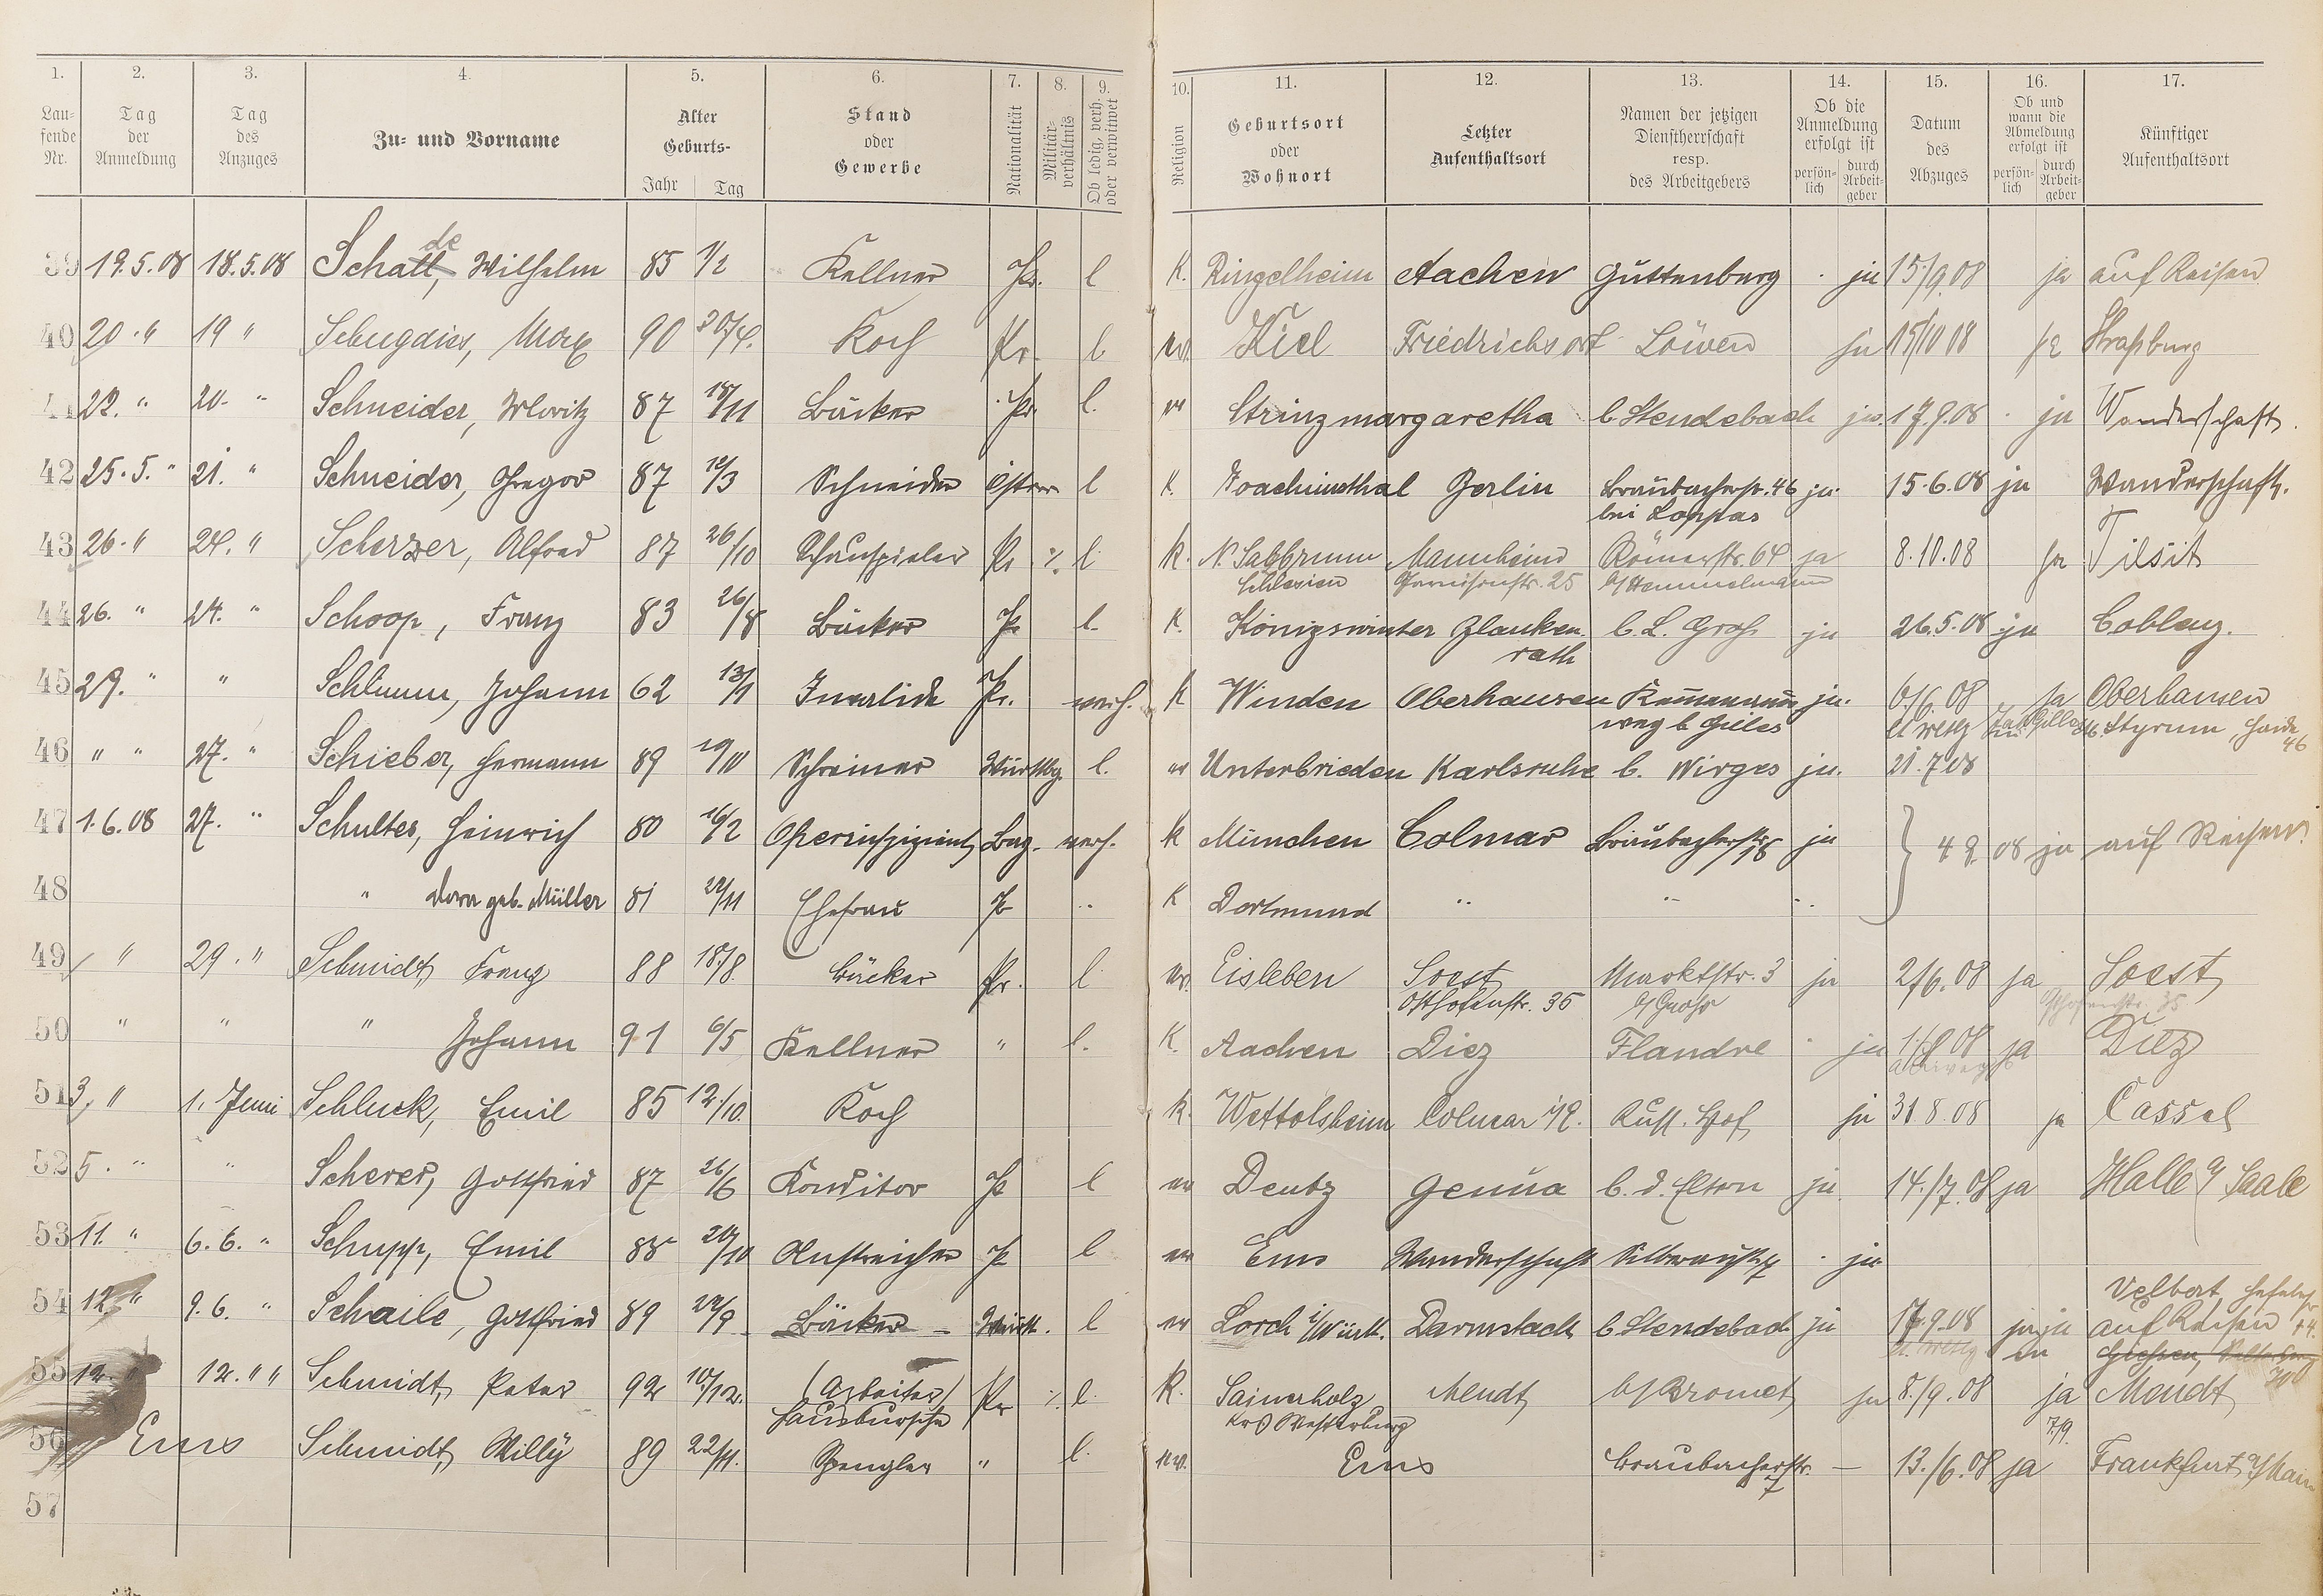 1. 2. 3. 4. 5. 6. 7. 8. 9. 10. 11. 12. 13. 14. 15. 16. 17.
Laufende Nr. Tag der Anmeldung Tag des Anzuges Zu- und Vorname Alter Geburts- Jahr Tag Stand oder Gewerbe Nationalität Militärverhältnis Ob ledig, verh. oder verwitwet Religion Geburtsort oder Wohnort Letzter Aufenthaltsort Namen der jetzigen Dienstherrschaft resp. des Arbeitgebers Ob die Anmeldung erfolgt ist persönlich durch Arbeitgeber Datum des Abzuges Ob und wann die Abmeldung erfolgt ist persönlich durch Arbeitgeber Künftiger Aufenthaltsort
de
39 19.5.08 18.5.08 Schall, Wilhelm 85 1/2 Kellner Pr. l K. Ringelheim Aachen Guttenburg ja 15/9.08 ja auf Reisen
40 20. " 19 " Schugdies, Max 90 20/4. Koch Pr. l. ev. Kiel Friedrichsort Löwen ja 15/10 08 ja Straßburg
41 22. " 20. " Schneider, Moritz 87 18/11 Bäcker Pr. l. ev Strinzmargaretha b. Stendebach ja. 17.9.08 ja Wanderschaft.
42 25.5. " 21. " Schneider, Gregor 87 12/3 Schneider östrr. l K. Joachimsthal Berlin Braubacherstr. 46 ja. 15.6.08 ja Wanderschaft.
bei Loppas
43 26. " 24. " Scherzer, Alfred 87 26/10 Schauspieler Pr. % l. K. N. Salzbrunn Mannheim Römerstr. 64 ja 8.10.08 ja Tilsit
Schlesien Garnisonstr. 25 b/ Hemmelmann
44 26. " 24. " Schoop, Franz 83 26/8 Bäcker Pr l. K. Königswinter Blanken b. L. Groß ja 26.5.08 ja Coblenz.
rath
45 29. " " Schlimm, Johann 62 13/1 Invalide Pr. verh. K Winden Oberhausen ja. 6/6.08 ja Oberhausen
weg b Gilles Styrum
46
46 " " 27. " Schieber, Hermann 89 10/11 Schreiner Württbg. l. ev Unterbrieden Karlsruhe b. Wirges ja. 21.7.08
47 1.6.08 27. " Schultes, Heinrich 80 16/2 Operninspizient Bay. verh. K München Colmar Braubacherstr. 18 ja 4 9 08 ja auf Reisen
48 " Dora geb. Müller 81 22/11 Ehefrau Pr " K Dortmund " " "
49 " 29. " Schmidt, Franz 88 18/8. Bäcker Pr. l ev. Eisleben Soest Marktstr. 3 ja 2/6.08 ja Soest
Osthofenstr. 35 35
50 " " " Johann 91 6/5 Kellner " l. K. Aachen Diez Flandre ja 1/9 08 ja Diez
51 3. " 1. Juni Schluck, Emil 85 12./10. Koch K. Wettolsheim Colmar Russ. Hof ja 31 8.08 ja Cassel
52 5. " " Scherer, Gottfried 87 26/6 Konditor Pr l ev Deutz Genua b. d. Eltern ja 14./7.08 ja Halle a/ Saale
53 11. " 6.6. " Schupp, Emil 88 20/10 Anstreicher Pr l ev Ems Wanderschaft ja
Velbert
54 12. " 9.6. " Schaile, Gottfried 89 22/9 Bäcker Württ. l ev Lorch i/Württ. Darmstadt b. Stendebach ja 17.9.08 ja auf Reisen
Giessen
55 12. " 12. " " Schmidt, Peter 92 10/12. (Arbeiter) Pr % l. K. Sainerholz Mendt b/ Bromet ja 8./9.08 ja Mendt
Hausbursche Krs Westerburg 7/9.
56 Ems Schmidt, Willy 89 22/11. Spengler " l. ev. Ems Braubacherstr. — 13./6.08 ja Frankfurt a/ Main
7
57